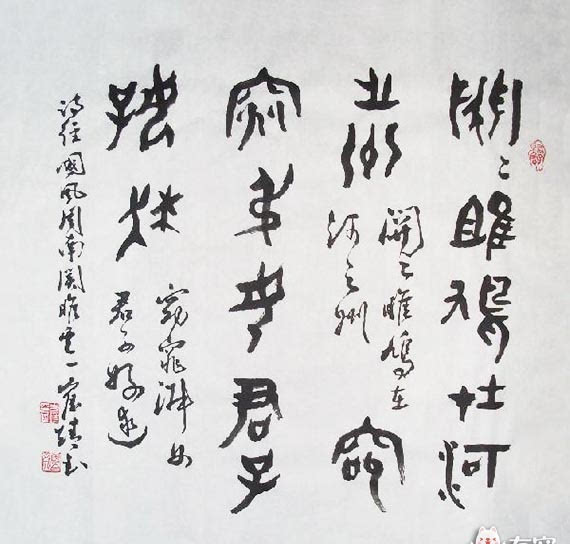 關〻雎鳩在河
之洲
關〻雎鳩在
河之洲
窈
窕淑女君子
好逑
窈窕淑女
君子好逑
詩經國風周南関雎之一